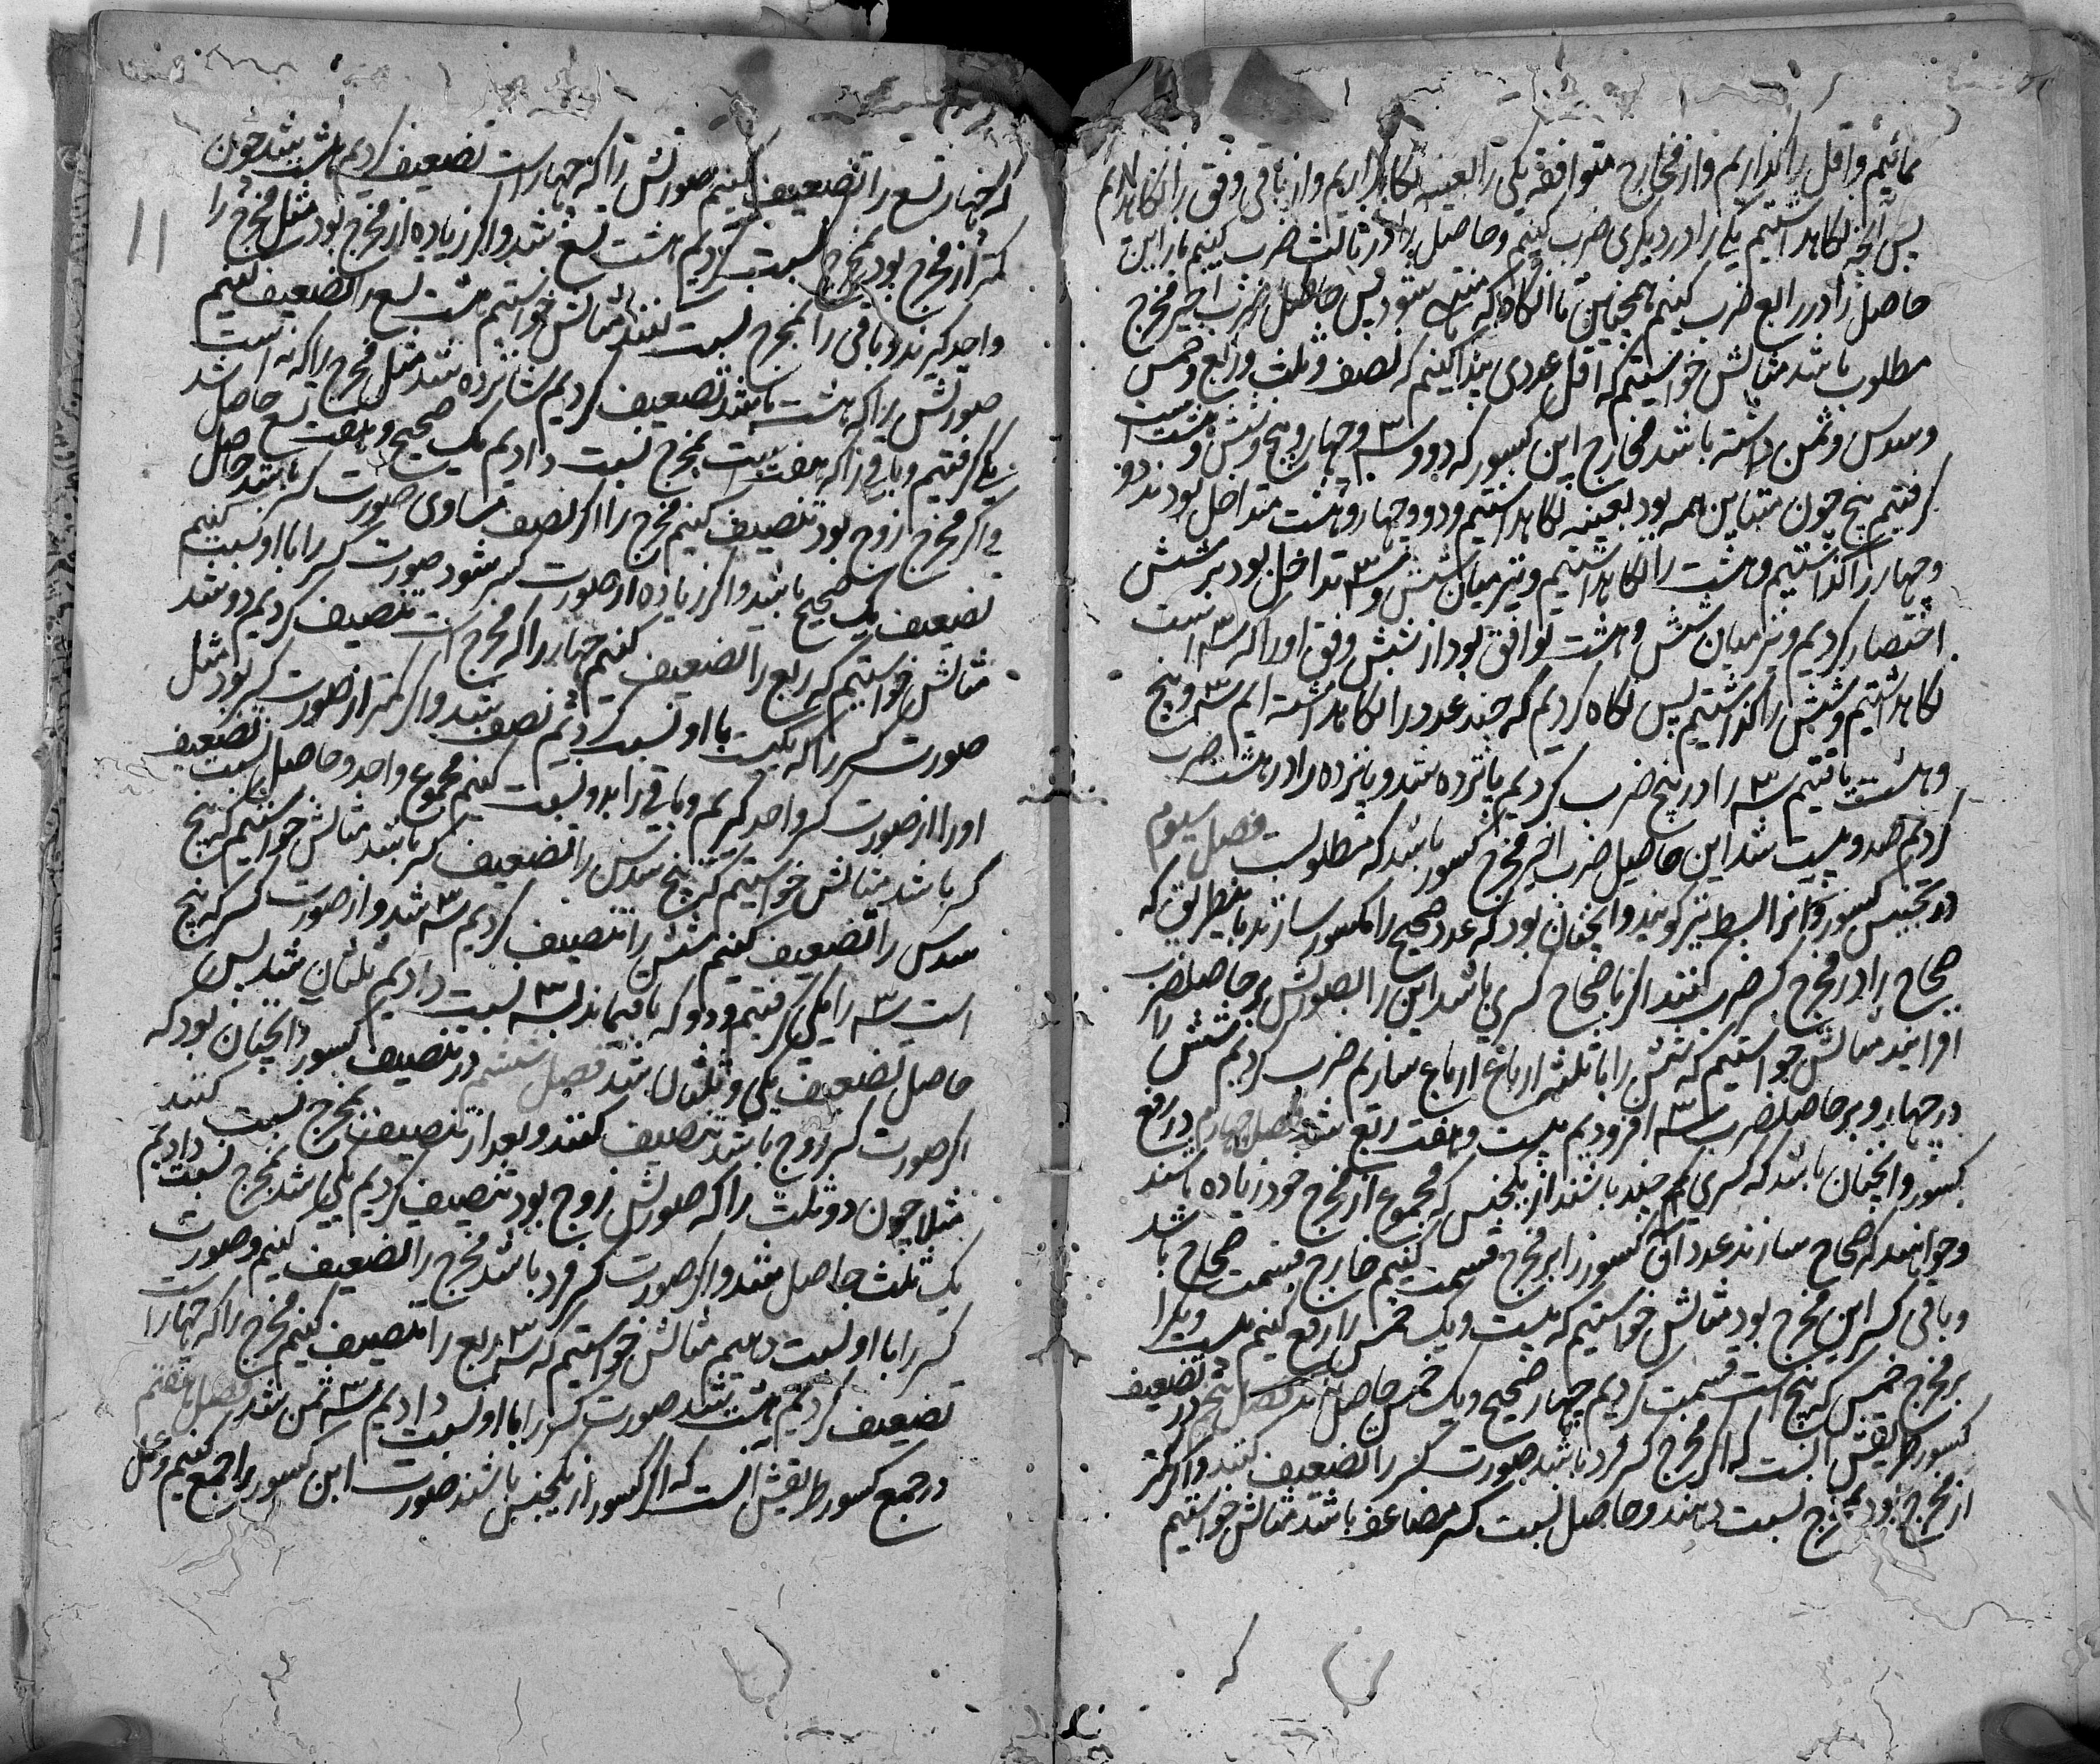 نمائیم و اقل را بگذاریم و از مخارج متوافقه یکی را بعینه نگاهداریم و از باقی وفق را نگاهداریم
پس آنچه نگاهداشتیم یکی را در دیگری ضرب کنیم و حاصل را در ثالث ضرب کنیم باز این
حاصل را در رابع ضرب کنیم همچنین تا آنگاه که منتهی شود پس حاصل ضرب اخیر مخرج
مطلوب باشد مثالش خواستیم که اقل عددی پیدا کنیم که نصف و ثلث و ربع و خمس
و سدس و ثمن داشته باشد مخارج این کسور که دو و سه و چهار و پنج و شش و هشت است
گرفتیم پنج چون متباین همه بود بعینه نگاهداشتیم و دو و چهار و هشت متداخل بودند دو
و چهار را گذاشتیم و هشت را نگاهداشتیم و نیز میان شش و سه تداخل بود بر شش
اختصار کردیم و نیز میان شش و هشت توافق بود از شش وفق او را که سه است
نگاهداشتیم و شش را گذاشتیم پس نگاه کردیم که چند عدد را نگاهداشته ایم سه و پنج
و هشت یافتیم سه را در پنج ضرب کردیم پانزده شد و پانزده را در هشت ضرب
کردیم صد و بیست شد این حاصل ضرب اخیر مخرج کسور باشد که مطلوبست فصل سیوم
در تجنیس کسور و آنرا بسط نیز گویند و آنچنان بود که عدد صحیح را مکسور سازند باینطریق که
صحاح را در مخرج کسر ضرب کنند اگر با صحاح کسری باشد این را بصورتش بر حاصلضرب
افزایند مثالش خواستیم که شش را با ثلثه ارباع ارباع سازیم ضرب کردیم شش را
در چهار و بر حاصلضرب سه افزودیم بیست و هفت ربع شد فصل چهارم در رفع
کسور و آنچنان باشد که کسری چند باشند از یکجنس که مجموع از مخرج خود زیاده باشند
و خواهند که صحاح سازند عدد آن کسور را بر مخرج قسمت کنیم خارج قسمت صحاح باشد
و باقی کسر این مخرج بود مثالش خواستیم که بیست و یک خمس را رفع کنیم بیست و یکرا
بر مخرج خمس که پنج است قسمت کردیم چهار صحیح و یک خمس حاصل شد فصل پنجم در تضعیف
کسور طریقش آنست که اگر مخرج کسر فرد باشد صورت کسر را تضعیف کنند و اگر کمتر
از مخرج بود بمخرج نسبت دهند و حاصل نسبت کسر مضاعف باشد مثالش خواستیم
که
۱۱
که چهار تسع را تضعیف کنیم صورتش را که چهار است تضعیف کردیم هشت شد چون
کمتر از مخرج بود بمخرج نسبت کردیم هشت تسع شد و اگر زیاده از مخرج بود مثل مخرج را
واحد گیرند و باقی را بمخرج نسبت کنند مثالش خواستیم هشت تسع را تضعیف کنیم
صورتش را که هشت باشد تضعیف کردیم شانزده شد مثل مخرج را که نه است
یکی گرفتیم و باقی را که هفت است بمخرج نسبت دادیم یک صحیح و هفت تسع حاصل شد
و اگر مخرج زوج بود تنصیف کنیم مخرج را اگر نصف مساوی صورت کسر باشد حاصل
تضعیف یک صحیح باشد و اگر زیاده از صورت کسر شود صورت کسر را با او نسبت کنیم
مثالش خواستیم که ربع را تضعیف کنیم چهار را که مخرج است تنصیف کردیم دو شد
صورت کسر را که یکست با او نسبت کردیم نصف شد و اگر کمتر از صورت کسر بود مثل
او را از صورت کسر واحد گیریم و باقی را بدو نسبت کنیم مجموع واحد و حاصل نسبت تضعیف
کسر باشد مثالش خواستیم که پنج سدس را تضعیف کسر باشد مثالش خواستیم که پنج
سدس را تضعیف کنیم شش را تنصیف کردیم سه شد و از صورت کسر که پنج
است سه را یکی گرفتیم و دو که باقیماند بسه نسبت دادیم ثلثان شد پس
حاصل تضعیف یکی و ثلثان باشد فصل ششم در تنصیف کسور و آنچنان بود که
اگر صورت کسر زوج باشد تنصیف کنند و بعد از تنصیف بمخرج نسبت کنند
مثلا چون دو ثلث را که صورتش زوج بود تنصیف کردیم یکی شد بمخرج نسبت دادیم
یک ثلث حاصل شد و اگر صورت کسر فرد باشد مخرج را تضعیف کنیم و صورت
کسر را با او نسبت دهیم مثالش خواستیم که سه ربع را تنصیف کنیم مخرج را که چهار است
تضعیف کردیم هشت شد صورت کسر را با او نسبت دادیم سه ثمن شد فصل هفتم
در جمع کسور طریقش آنست که اگر کسور از یکجنس باشند صورت این کسور را جمع کنیم و عمل